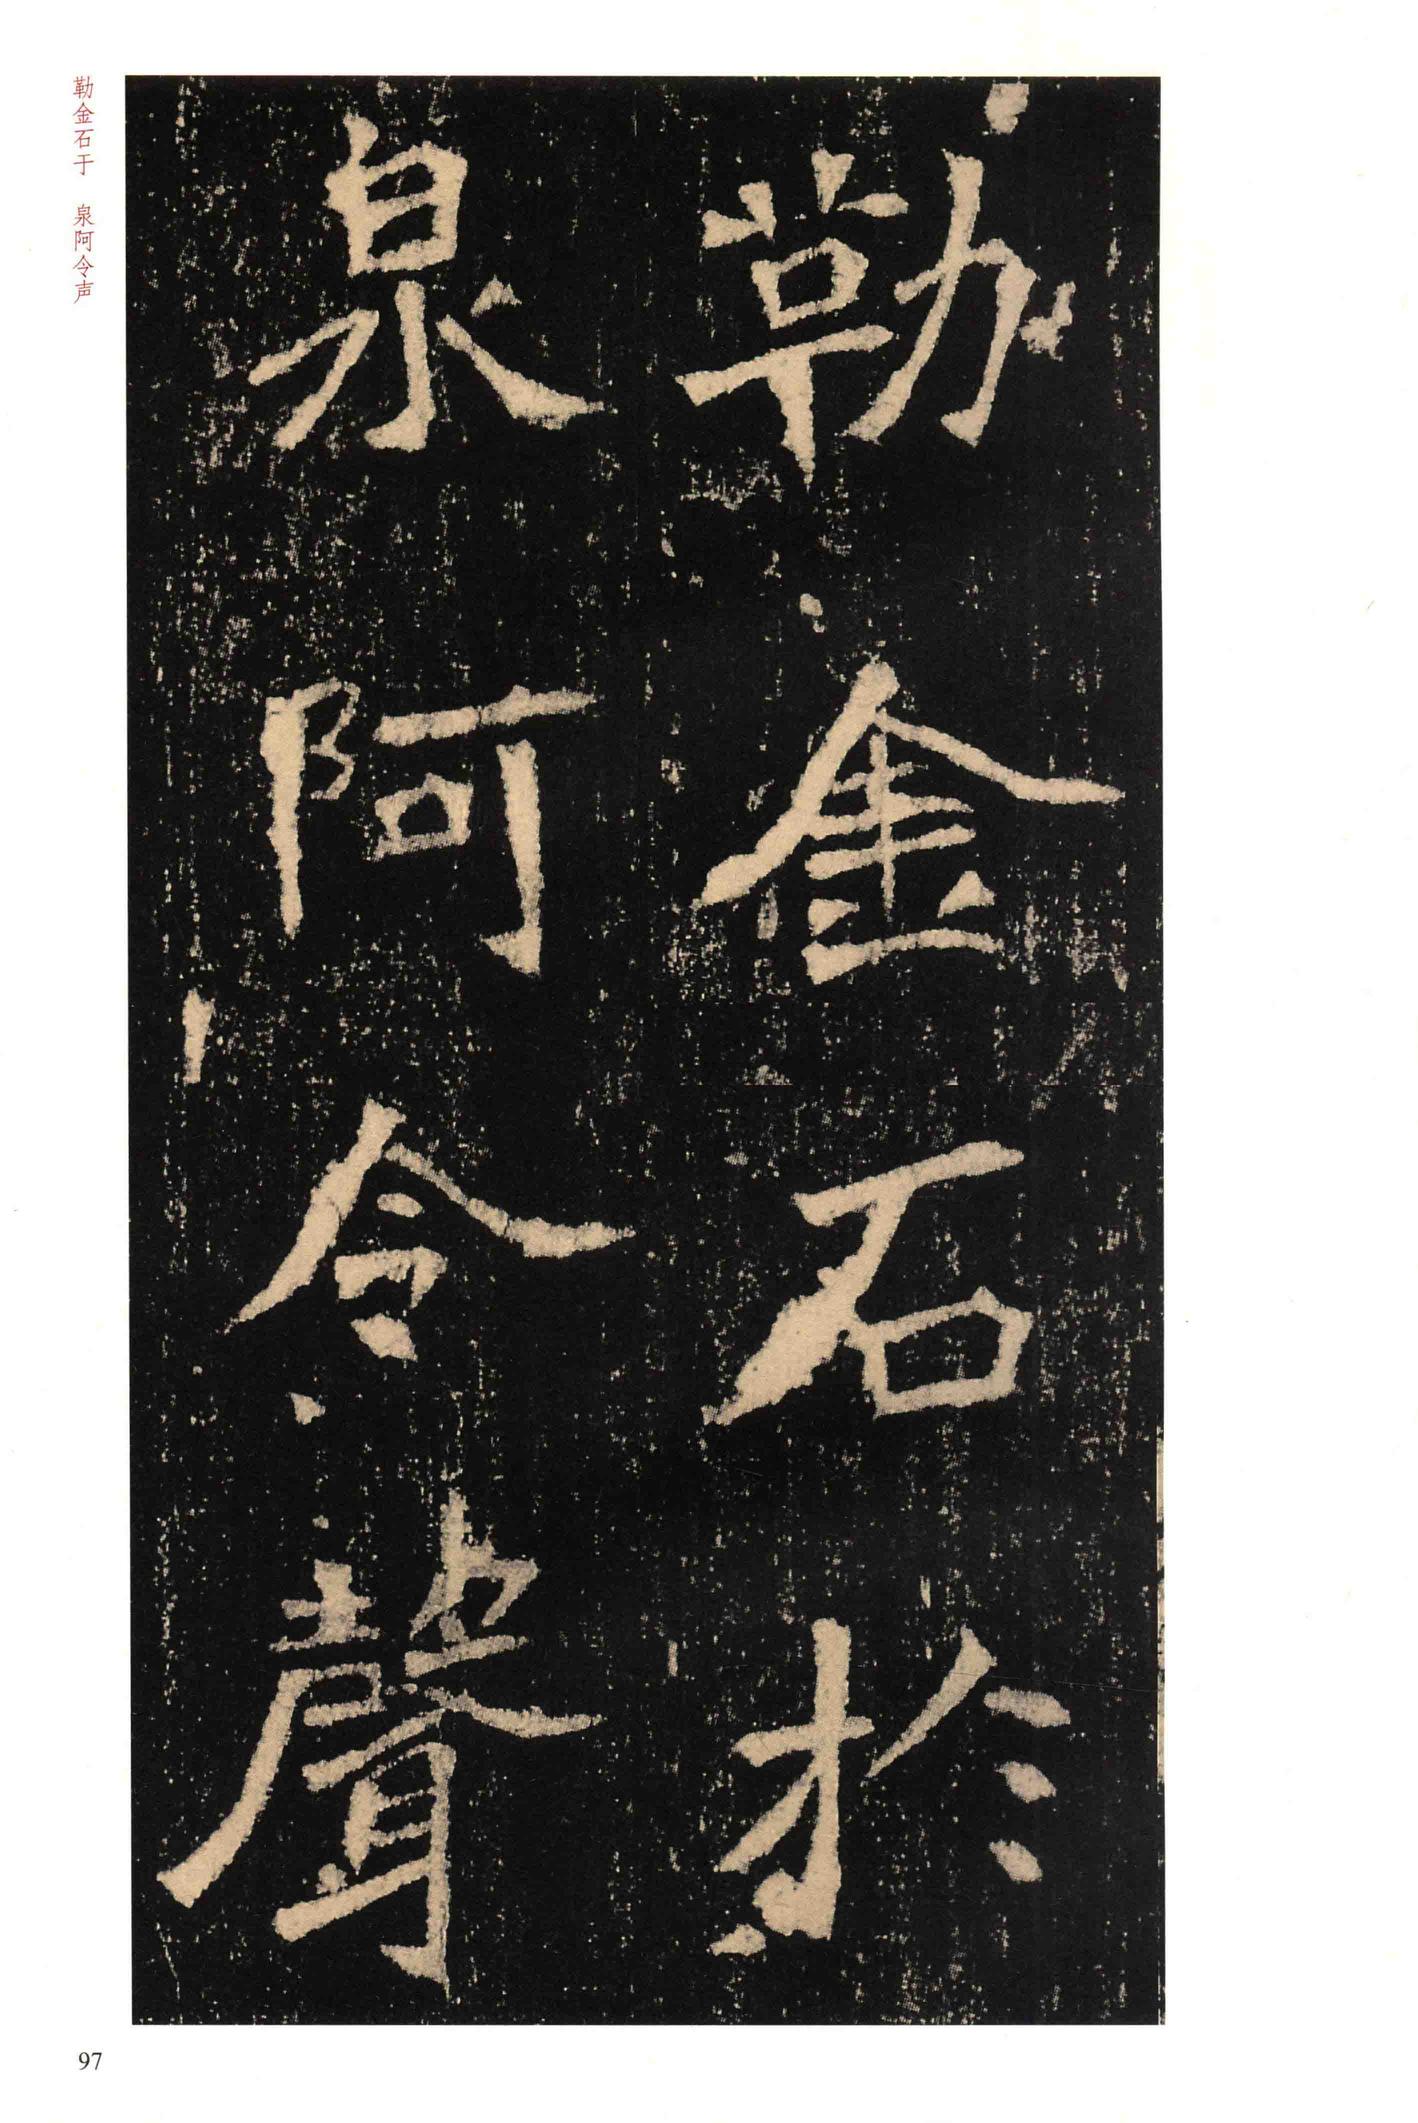 勒金石於
泉阿令聲
勒金石于　泉阿令声
97